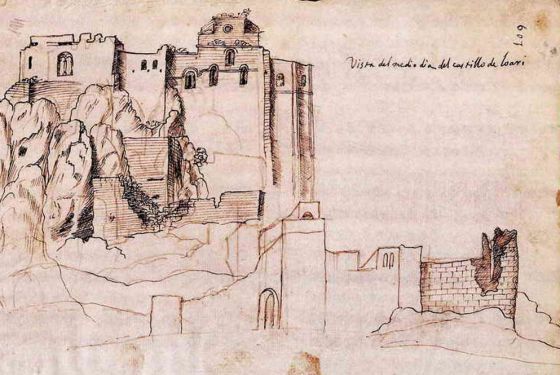 Vista del medio dia del castillo de loarri
109